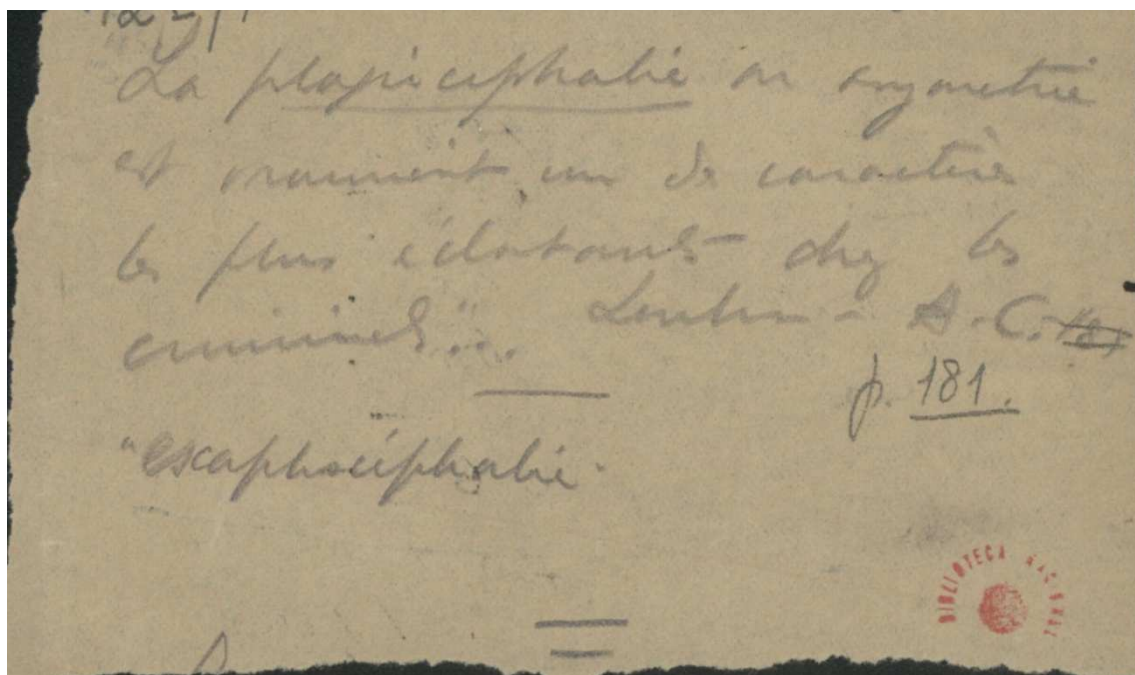 La plagiciphalie ou asymetrie
est vraiment un de caractères
les plus éclatants chez les
criminels"... A.C.
p. 181.
"escaphociphalie"
BIBLIOTECA NACIONAL